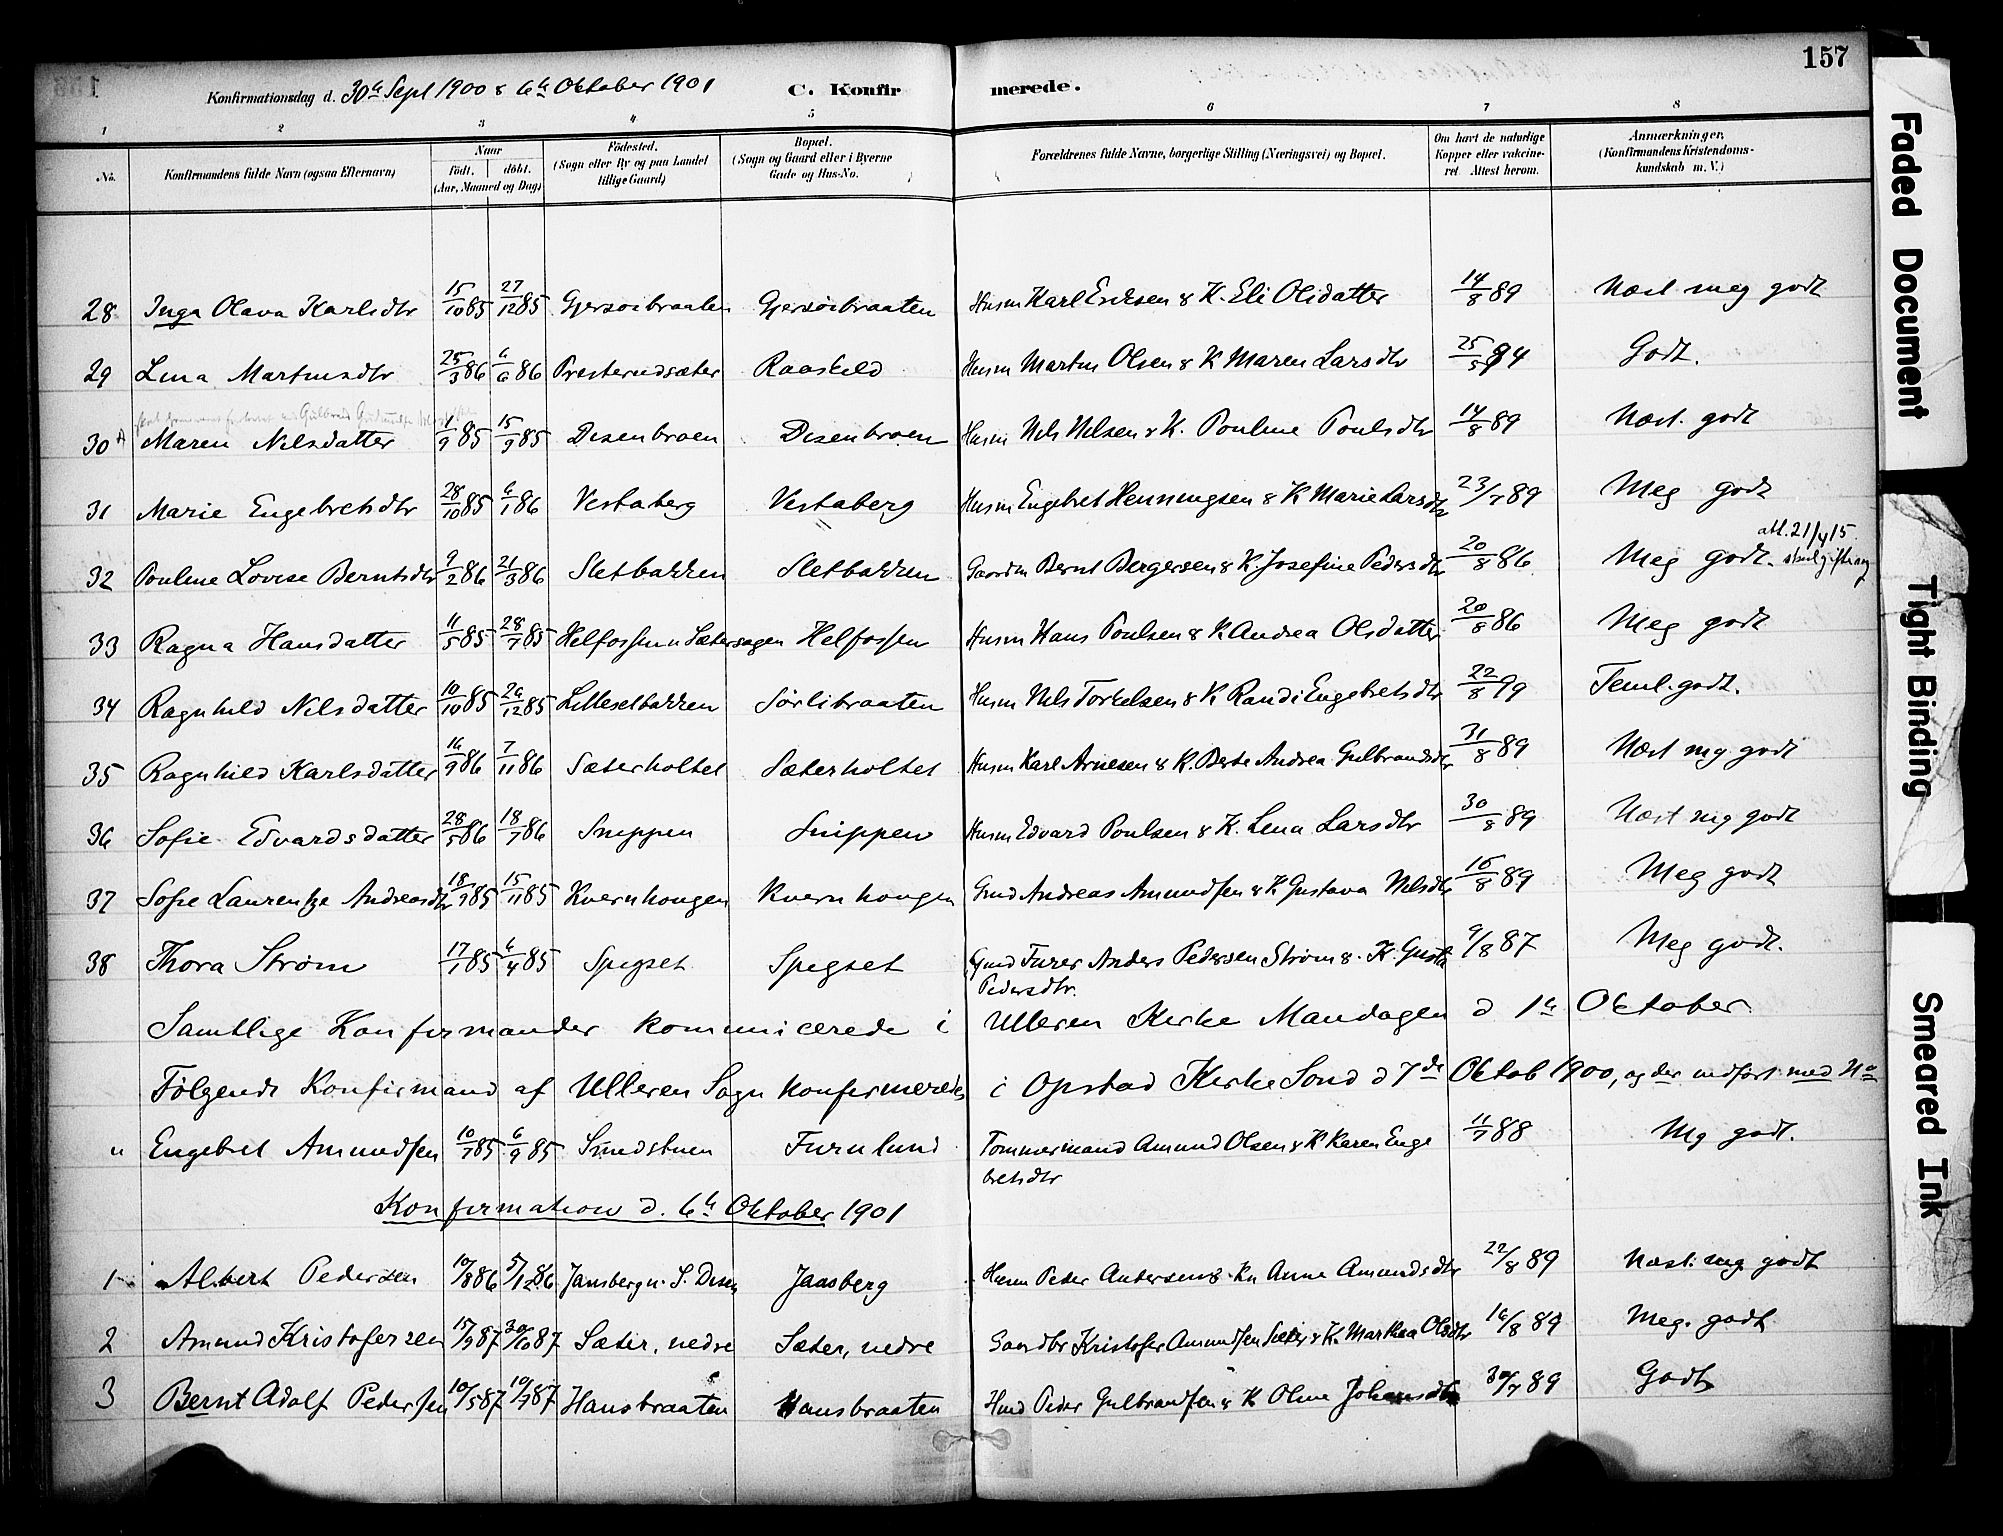 157
Konfirmationsdag d. 30te Sept 1900 & 6te Oktober 1901 C. Konfirmerede.
1 2 3 4 5 6 7 8
No. Konfirmandens fulde Navn (ogsaa Efternavn) Naar födt. döbt. (Aar, Maaned og Dag) Födested. (Sogn eller By og paa Landet tillige Gaard) Bopæl. (Sogn og Gaard eller i Byerne Gade og Hus-No. Forældrenes fulde Navne, borgerlige Stilling (Næringsvei) og Bopæl. Om havt de naturlige Kopper eller vakcineret Attest herom. Anmærkninger, (Konfirmandens Kristendomskundskab m. V.)
28 Inga Olava Karlsdtr 15/10 85 27/12 85 Gjersøibraaten Gjersøibraaten Husm Karl Eriksen & K. Eli Olsdatter 14/8 89 Næst meg godt
29 Lina Martinsdtr 25/3 86 6/6 86 Presterudsæter Raaskild Husm Martin Olsen & K Maren Larsdtr 25/5 94 Godt.
30 Maren Nilsdatter 1/9 85 15/9 85 Disenbroen Disenbroen Husm Nils Nilsen & K. Pouline Poulsdtr 14/8 89 Næst. godt
31 Marie Engebretsdtr 28/10 85 6/1 86 Vestaberg Vestaberg Husm Engebret Henningsen & K Marie Larsdtr 23/7 89 Meg godt
32 Pouline Lovise Berntsdtr 9/2 86 21/3 86 Sletbakken Sletbakken Gaardm Bernt Bergersen & K. Josefine Pedersdtr 20/8 86 Meg godt. att. 21/4 15.
33 Ragna Hansdatter 11/5 85 28/7 85 Helfossen u Sætersagen Helfossen Husm Hans Poulsen & K Andrea Olsdatter 20/8 86 Meg godt
34 Ragnhild Nilsdatter 10/10 85 26/12 85 Lilleselbakken Sørlibraaten Husm Nils Torkelsen & K Randi Engebretsdtr 22/8 99 Teml. godt.
35 Ragnhild Karlsdatter 16/9 86 7/11 86 Sæterholtet Sæterholtet Husm Karl Arnesen & K. Berte Andrea Gulbrandsdtr 31/8 89 Næst mg godt
36 Sofie Edvardsdatter 28/5 86 18/7 86 Snippen Snippen Husm Edvard Poulsen & K. Lena Larsdtr 30/8 89 Næst mg godt
37 Sofie Laurentze Andreasdtr 18/9 85 15/11 85 Kvernhougen Kvernhougen Grnd Andreas Amundsen & K Gustava Nilsdtr 16/8 89 Meg godt
38 Thora Strøm 17/1 85 6/4 85 Spigset Spigset Anders Pedersen Strøm & K. Gusta 9/8 87 Meg godt.
Pedersdtr.
Samtlige Konfirmander kommunicerede i Ulleren Kirke Mandagen d 1ste Oktober
Følgende Konfirmand af Ulleren Sogn konfirmeredes i Opstad Kirke Sønd d 7de Oktob 1900, og der indført med No
" Engebret Amundsen 10/7 85 6/9 85 Smedstuen Furulund Tømmermand Amund Olsen & K Karen Enge 11/7 88 Mg godt.
bretsdtr
Konfirmation d. 6te Oktober 1901
1 Albert Pedersen 10/8 86 5/12 86 Jansberg u. S. Disen Jaasberg Husm Peder Andersen & Kn Anne Amundsdtr 22/8 89 Næst. mg godt
2 Amund Kristofersen 15/9 87 30/10 87 Sæter, nedre Sæter, nedre Gaardbr Kristofer Amundsen Sæter & K. Marthea Olsdtr 16/8 89 Meg. godt
3 Bernt Adolf Pedersen 10/5 87 10/7 87 Hansbraaten Hansbraaten Hmd Peder Gulbrandsen & K Oline Johansdtr 30/7 89 Godt
Faded Document
Tight Binding
Smeared Ink